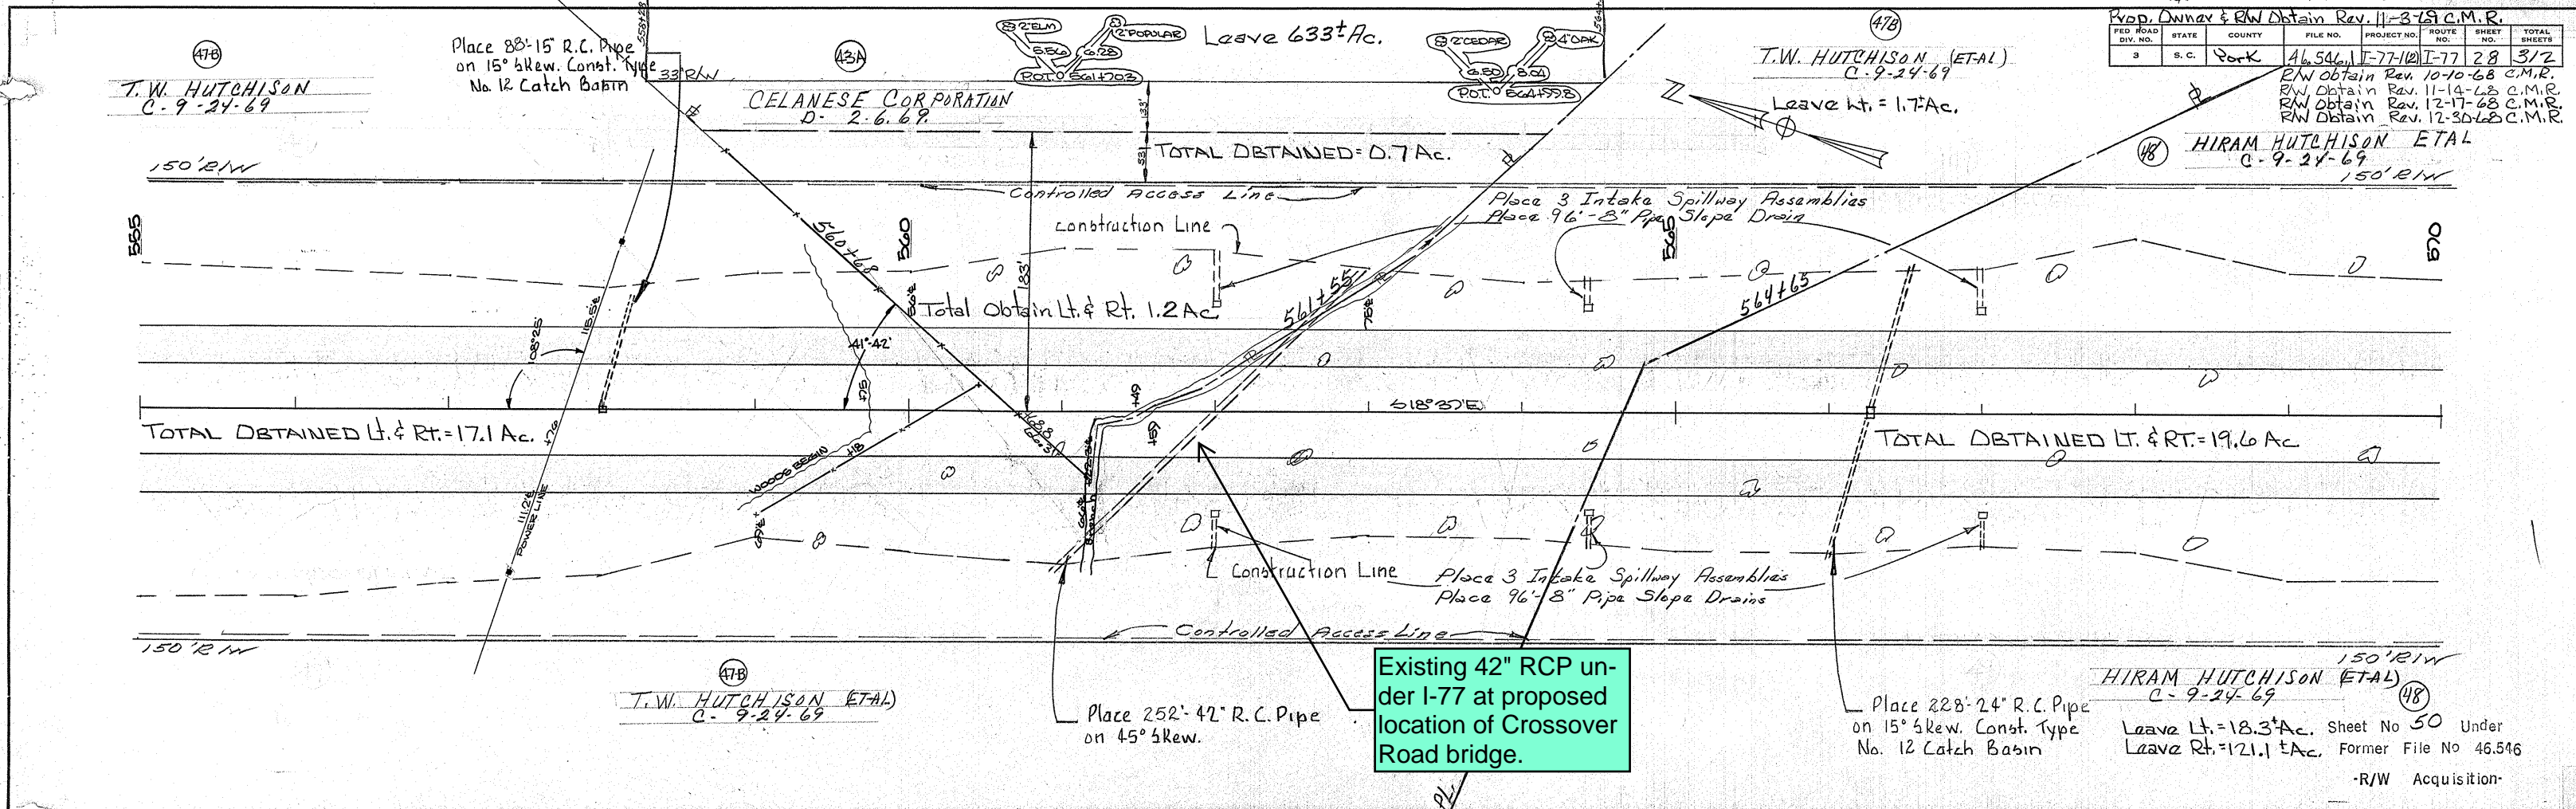 47-B
T.W. HUTCHISON
C-9-24-69
Place 88'-15" R.C. Pipe
on 15° Skew. Const. Type
No. 12 Catch Basin
33' R/W
43A
CELANESE CORPORATION
D- 2.6.69.
2'ELM
2'POPULAR
5.56
6.28
P.O.T. 561+703
Leave 633± Ac.
2'CEDAR
4'OAK
6.50
8.04
P.O.T. 564+998
47B
T.W. HUTCHISON (ET-AL)
C-9-24-69
Leave Lt. = 1.7± Ac.
Prop. Owner & R/W Obtain Rev. 11-3-69 C.M.R.
FED ROAD DIV. NO.
STATE
COUNTY
FILE NO.
PROJECT NO.
ROUTE NO.
SHEET NO.
TOTAL SHEETS
3
S.C.
York
46.546.1
I-77-1(2)
I-77
28
312
R/W Obtain Rev. 10-10-68 C.M.R.
R/W Obtain Rev. 11-14-68 C.M.R.
R/W Obtain Rev. 12-17-68 C.M.R.
R/W Obtain Rev. 12-30-68 C.M.R.
48
HIRAM HUTCHISON ETAL
C-9-24-69
150' R/W
133'
53'
TOTAL OBTAINED = 0.7 Ac.
150' R/W
Controlled Access Line
Place 3 Intake Spillway Assemblies
Place 96'-8" Pipe Slope Drain
Construction Line
555
560
565
570
560+68
183'
561+55
564+65
Total Obtain Lt. & Rt. 1.2 Ac
108°25'
41°-42'
+75
+49
+59
S18°37'E
TOTAL OBTAINED Lt. & Rt. = 17.1 Ac.
+76
TOTAL OBTAINED LT. & RT. = 19.6 Ac
WOODS BEGIN
+18
111.2'E
POWER LINE
Branch
Construction Line
Place 3 Intake Spillway Assemblies
Place 96'-8" Pipe Slope Drains
Controlled Access Line
150' R/W
150' R/W
47B
T.W. HUTCHISON (ET-AL)
C- 9-24-69
Place 252'-42" R.C. Pipe
on 45° Skew.
Existing 42" RCP un-
der I-77 at proposed
location of Crossover
Road bridge.
PL
Place 228'-24" R.C. Pipe
on 15° Skew. Const. Type
No. 12 Catch Basin
HIRAM HUTCHISON (ETAL)
C- 9-24-69
48
Leave Lt. = 18.3± Ac.
Leave Rt. = 121.1± Ac.
Sheet No 50 Under
Former File No 46.546
-R/W Acquisition-